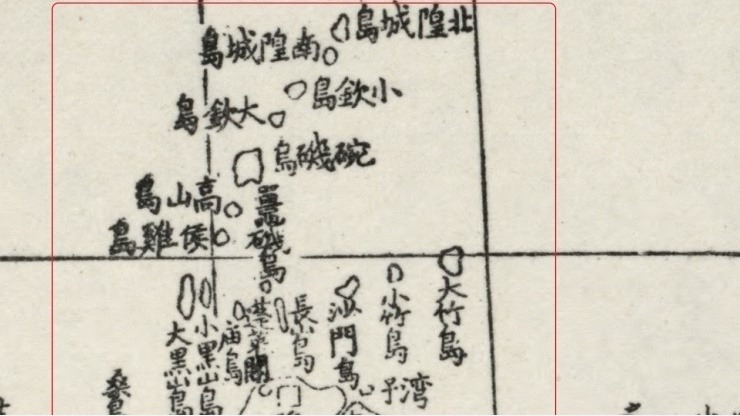 北隍城島
南隍城島
小欽島
大欽島
碗磯島
高山島
侯雞島
鼉磯島
大竹島
小竹島
沙門島
長山島
蓬萊閣
庙島
小黑山島
大黑山島
桑島
湾子